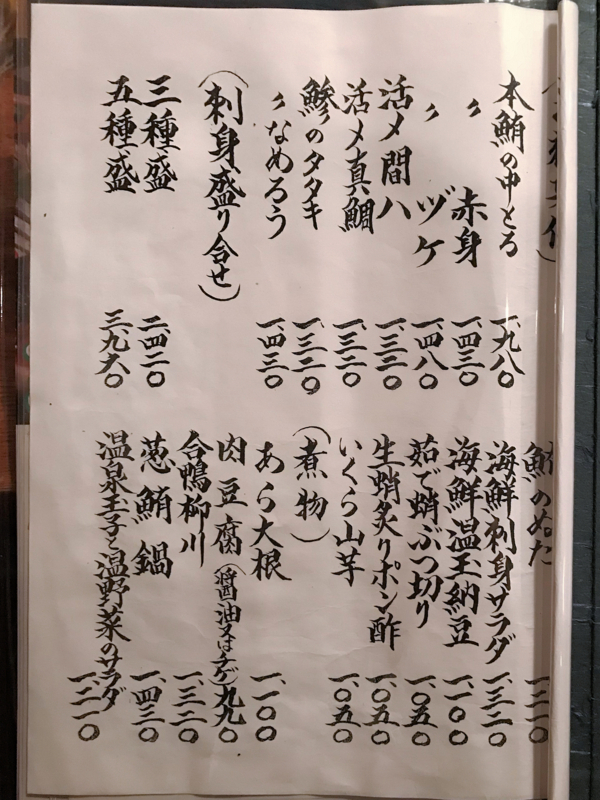 本鮪の中とろ 一、九八〇
〃 赤身 一、四三〇
〃 ヅケ 一、四八〇
活〆間ハ 一、三二〇
活〆真鯛 一、三二〇
鯵のタタキ 一、三二〇
〃なめろう 一、四三〇
（刺身盛り合せ）
三種盛 二、四二〇
五種盛 三、九六〇
鮪のぬた 一、二一〇
海鮮刺身サラダ 一、三二〇
海鮮温玉納豆 一、一〇〇
茹で蛸ぶつ切り 一、〇五〇
生蛸炙りポン酢 一、〇五〇
いくら山芋 一、〇五〇
（煮物）
あら大根 一、一〇〇
肉豆腐（醤油又はチゲ）九九〇
合鴨柳川 一、三二〇
葱鮪鍋 一、四三〇
温泉玉子と温野菜のサラダ 一、二一〇